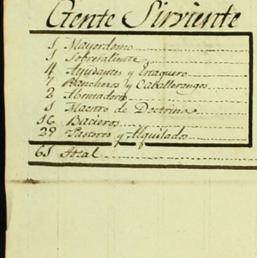 Gente Sirviente
1 Mayordomo
1 Sobresaliente
4 Ayudantes y
7 Rancheros y Caballerangos
2
1 Maestro de Doctrina
16 Bacieros
29 Pastores y Alquilados
61 Total